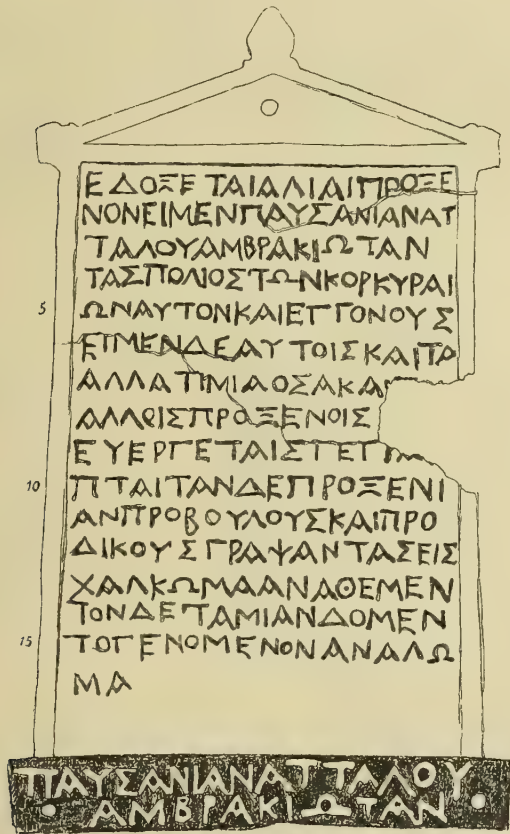 ΕΔΟΞΕΤΑΙΑΛΙΑΙΠΡΟΞΕ
ΝΟΝΕΙΜΕΝΠΑΥΣΑΝΙΑΝΑΤ
ΤΑΛΟΥΑΜΒΡΑΚΙΩΤΑΝ
ΤΑΣΠΟΛΙΟΣΤΩΝΚΟΡΚΥΡΑΙ
5 ΩΝΑΥΤΟΝΚΑΙΕΓΓΟΝΟΥΣ
ΕΙΜΕΝΔΕΑΥΤΟΙΣΚΑΙΤΑ
ΑΛΛΑΤΙΜΙΑΟΣΑΚΑ
ΑΛΛΟΙΣΠΡΟΞΕΝΟΙΣ
ΕΥΕΡΓΕΤΑΙΣΓΕΓΡ
10 ΠΤΑΙΤΑΝΔΕΠΡΟΞΕΝΙ
ΑΝΠΡΟΒΟΥΛΟΥΣΚΑΙΠΡΟ
ΔΙΚΟΥΣΓΡΑΨΑΝΤΑΣΕΙΣ
ΧΑΛΚΩΜΑΑΝΑΘΕΜΕΝ
ΤΟΝΔΕΤΑΜΙΑΝΔΟΜΕΝ
15 ΤΟΓΕΝΟΜΕΝΟΝΑΝΑΛΩ
ΜΑ
ΠΑΥΣΑΝΙΑΝΑΤΤΑΛΟΥ
ΑΜΒΡΑΚΙΩΤΑΝ